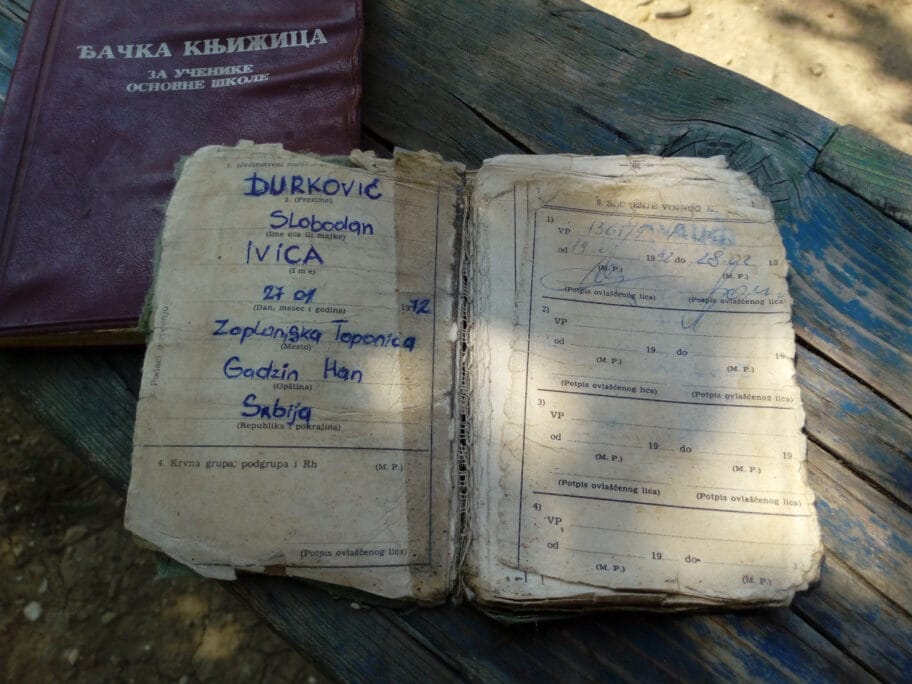 ЂАЧКА КЊИЖИЦА
ЗА УЧЕНИКЕ
ОСНОВНЕ ШКОЛЕ
1. (Jedinstveni
ĐURKOVIĆ
2. (Prezime)
Slobodan
(Ime oca ili majke)
IVICA
(Ime)
27 01 1972
(Dan, mesec i godina)
Zaplanjska Toponica
(Mesto)
Gadzin Han
(Opština)
Srbija
(Republika i pokrajina)
4. Krvna grupa, podgrupa i Rh (M. P.)
(Potpis ovlašćenog lica)
1)
VP
od 1992 do 28.02 19
(M. P.) (M. P.)
(Potpis ovlašćenog lica) (Potpis ovlašćenog lica)
2)
VP
od 19 do 19
(M. P.) (M. P.)
(Potpis ovlašćenog lica) (Potpis ovlašćenog lica)
3)
VP
od 19 do 19
(M. P.) (M. P.)
(Potpis ovlašćenog lica) (Potpis ovlašćenog lica)
4)
VP
od 19 do
(M. P.) (M. P.)